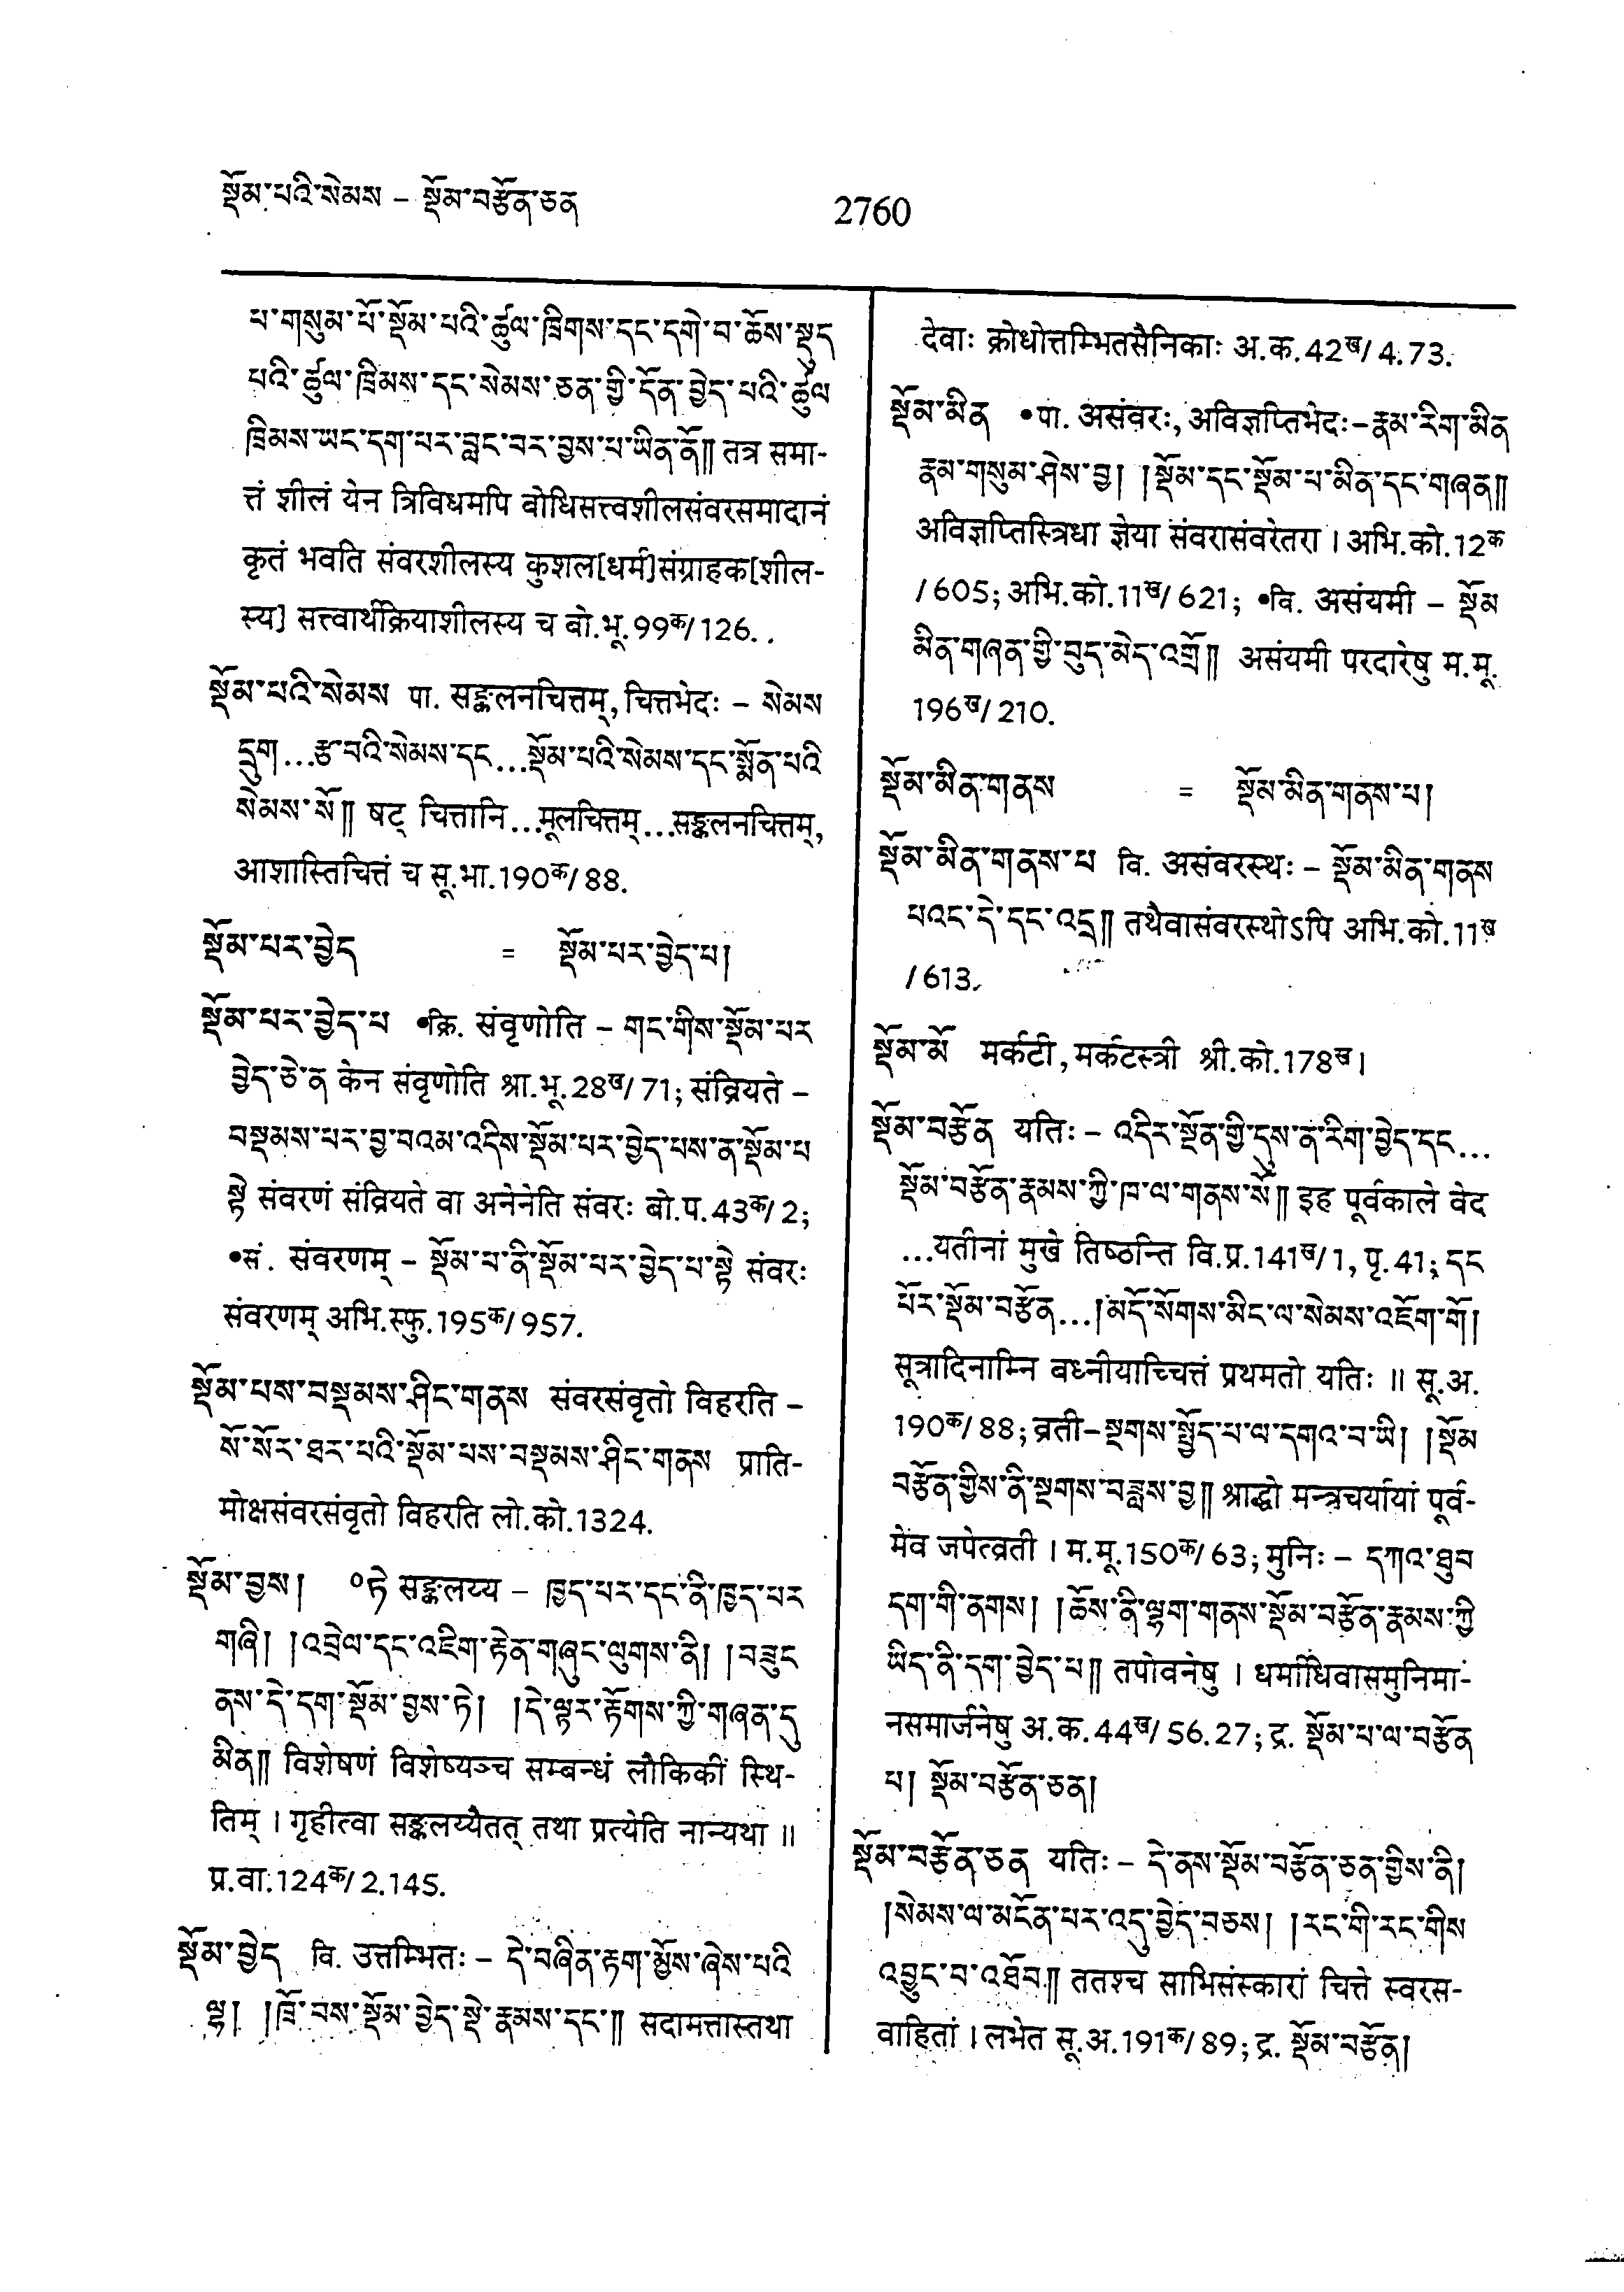 སྡོམ་པའི་སེམས – སྡོམ་བརྩོན་ཅན
2760
པ་གསུམ་པོ་སྡོམ་པའི་ཚུལ་ཁྲིགས་དང་དགེ་བ་ཆོས་སྡུད
པའི་ཚུལ་ཁྲིམས་དང་སེམས་ཅན་གྱི་དོན་བྱེད་པའི་ཚུལ
ཁྲིམས་ཡང་དག་པར་བླང་བར་བྱས་པ་ཡིན་ནོ༎ तत्र समा-
त्तं शीलं येन त्रिविधमपि बोधिसत्त्वशीलसंवरसमादानं
कृतं भवति संवरशीलस्य कुशल[धर्म]संग्राहक[शील-
स्य] सत्त्वार्थक्रियाशीलस्य च बो.भू.99क/126.
སྡོམ་པའི་སེམས पा. सङ्कलनचित्तम्, चित्तभेदः – སེམས
དྲུག...རྩ་བའི་སེམས་དང...སྡོམ་པའི་སེམས་དང་སྨོན་པའི
སེམས་སོ༎ षट् चित्तानि...मूलचित्तम्...सङ्कलनचित्तम्,
आशास्तिचित्तं च सू.भा.190क/88.
སྡོམ་པར་བྱེད = སྡོམ་པར་བྱེད་པ།
སྡོམ་པར་བྱེད་པ •क्रि. संवृणोति – གང་གིས་སྡོམ་པར
བྱེད་ཅེ་ན केन संवृणोति श्रा.भू.28ख/71; संव्रियते –
བསྡམས་པར་བྱ་བའམ་འདིས་སྡོམ་པར་བྱེད་པས་ན་སྡོམ་པ
སྟེ संवरणं संव्रियते वा अनेनेति संवरः बो.प.43क/2;
•सं. संवरणम् – སྡོམ་པ་ནི་སྡོམ་པར་བྱེད་པ་སྟེ संवरः
संवरणम् अभि.स्फु.195क/957.
སྡོམ་པས་བསྡམས་ཤིང་གནས संवरसंवृतो विहरति –
སོ་སོར་ཐར་པའི་སྡོམ་པས་བསྡམས་ཤིང་གནས प्राति-
मोक्षसंवरसंवृतो विहरति लो.को.1324.
སྡོམ་བྱས། °ཏེ सङ्कलय्य – ཁྱད་པར་དང་ནི་ཁྱད་པར
གཞི། །འབྲེལ་དང་འཇིག་རྟེན་གཞུང་ལུགས་ནི། །བཟུང
ནས་དེ་དག་སྡོམ་བྱས་ཏེ། །དེ་ལྟར་རྟོགས་ཀྱི་གཞན་དུ
མིན༎ विशेषणं विशेष्यञ्च सम्बन्धं लौकिकीं स्थि-
तिम् । गृहीत्वा सङ्कलय्यैतत् तथा प्रत्येति नान्यथा ॥
प्र.वा.124क/2.145.
སྡོམ་བྱེད वि. उत्तम्भितः – དེ་བཞིན་རྟག་མྱོས་ཞེས་པའི
ལྷ། །ཁྲོ་བས་སྡོམ་བྱེད་སྡེ་རྣམས་དང་༎ सदामत्तास्तथा
देवाः क्रोधोत्तम्भितसैनिकाः अ.क.42ख/4.73.
སྡོམ་མིན •पा. असंवरः, अविज्ञप्तिभेदः–རྣམ་རིག་མིན
རྣམ་གསུམ་ཤེས་བྱ། །སྡོམ་དང་སྡོམ་པ་མིན་དང་གཞན༎
अविज्ञप्तिस्त्रिधा ज्ञेया संवरासंवरेतरा । अभि.को.12क
/605; अभि.को.11ख/621; •वि. असंयमी – སྡོམ
མིན་གཞན་གྱི་བུད་མེད་འགྲོ༎ असंयमी परदारेषु म.मू.
196ख/210.
སྡོམ་མིན་གནས = སྡོམ་མིན་གནས་པ།
སྡོམ་མིན་གནས་པ वि. असंवरस्थः – སྡོམ་མིན་གནས
པའང་དེ་དང་འདྲ༎ तथैवासंवरस्थोऽपि अभि.को.11ख
/613.
སྡོམ་མོ मर्कटी, मर्कटस्त्री श्री.को.178ख।
སྡོམ་བརྩོན यतिः – འདིར་སྔོན་གྱི་དུས་ན་རིག་བྱེད་དང...
སྡོམ་བརྩོན་རྣམས་ཀྱི་ཁ་ལ་གནས་སོ༎ इह पूर्वकाले वेद
...यतीनां मुखे तिष्ठन्ति वि.प्र.141ख/1, पृ.41; དང
པོར་སྡོམ་བརྩོན...།མདོ་སོགས་མིང་ལ་སེམས་འཇོག་གོ།
सूत्रादिनाम्नि बध्नीयाच्चित्तं प्रथमतो यतिः ॥ सू.अ.
190क/88; व्रती–སྔགས་སྤྱོད་པ་ལ་དགའ་བ་ཡི། །སྡོམ
བརྩོན་གྱིས་ནི་སྔགས་བཟླས་བྱ༎ श्राद्धो मन्त्रचर्यायां पूर्व-
मेव जपेत्व्रती । म.मू.150क/63; मुनिः – དཀའ་ཐུབ
དག་གི་ནགས། །ཆོས་ནི་ལྷག་གནས་སྡོམ་བརྩོན་རྣམས་ཀྱི
ཡིད་ནི་དག་བྱེད་པ༎ तपोवनेषु । धर्माधिवासमुनिमा-
नसमार्जनेषु अ.क.44ख/56.27; द्र. སྡོམ་པ་ལ་བརྩོན
པ། སྡོམ་བརྩོན་ཅན།
སྡོམ་བརྩོན་ཅན यतिः – དེ་ནས་སྡོམ་བརྩོན་ཅན་གྱིས་ནི།
།སེམས་ལ་མངོན་པར་འདུ་བྱེད་བཅས། །རང་གི་རང་གིས
འབྱུང་བ་འཐོབ༎ ततश्च साभिसंस्कारां चित्ते स्वरस-
वाहितां । लभेत सू.अ.191क/89; द्र. སྡོམ་བརྩོན།